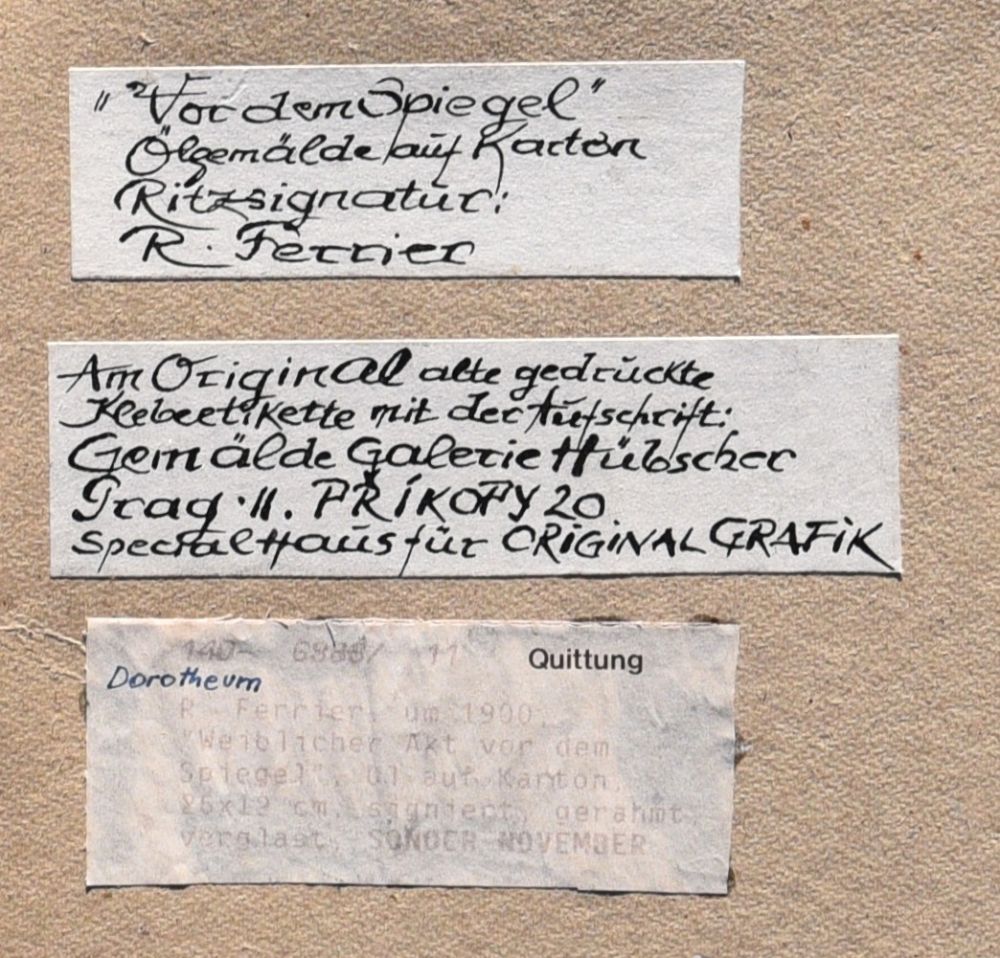 "Vor dem Spiegel"
Ölgemälde auf Karton
Ritzsignatur:
R. Ferrier
Am Original alte gedruckte
Klebeetikette mit der Aufschrift:
Gemälde Galerie Hübscher
Prag · II. PŘÍKOPY 20
SpecialHaus für ORIGINAL GRAFIK
140- 11 Quittung
Dorotheum
R. Ferrier, um 1900,
"Weiblicher Akt vor dem
Spiegel", Öl auf Karton,
cm, signiert, gerahmt,
verglast, SONDER NOVEMBER